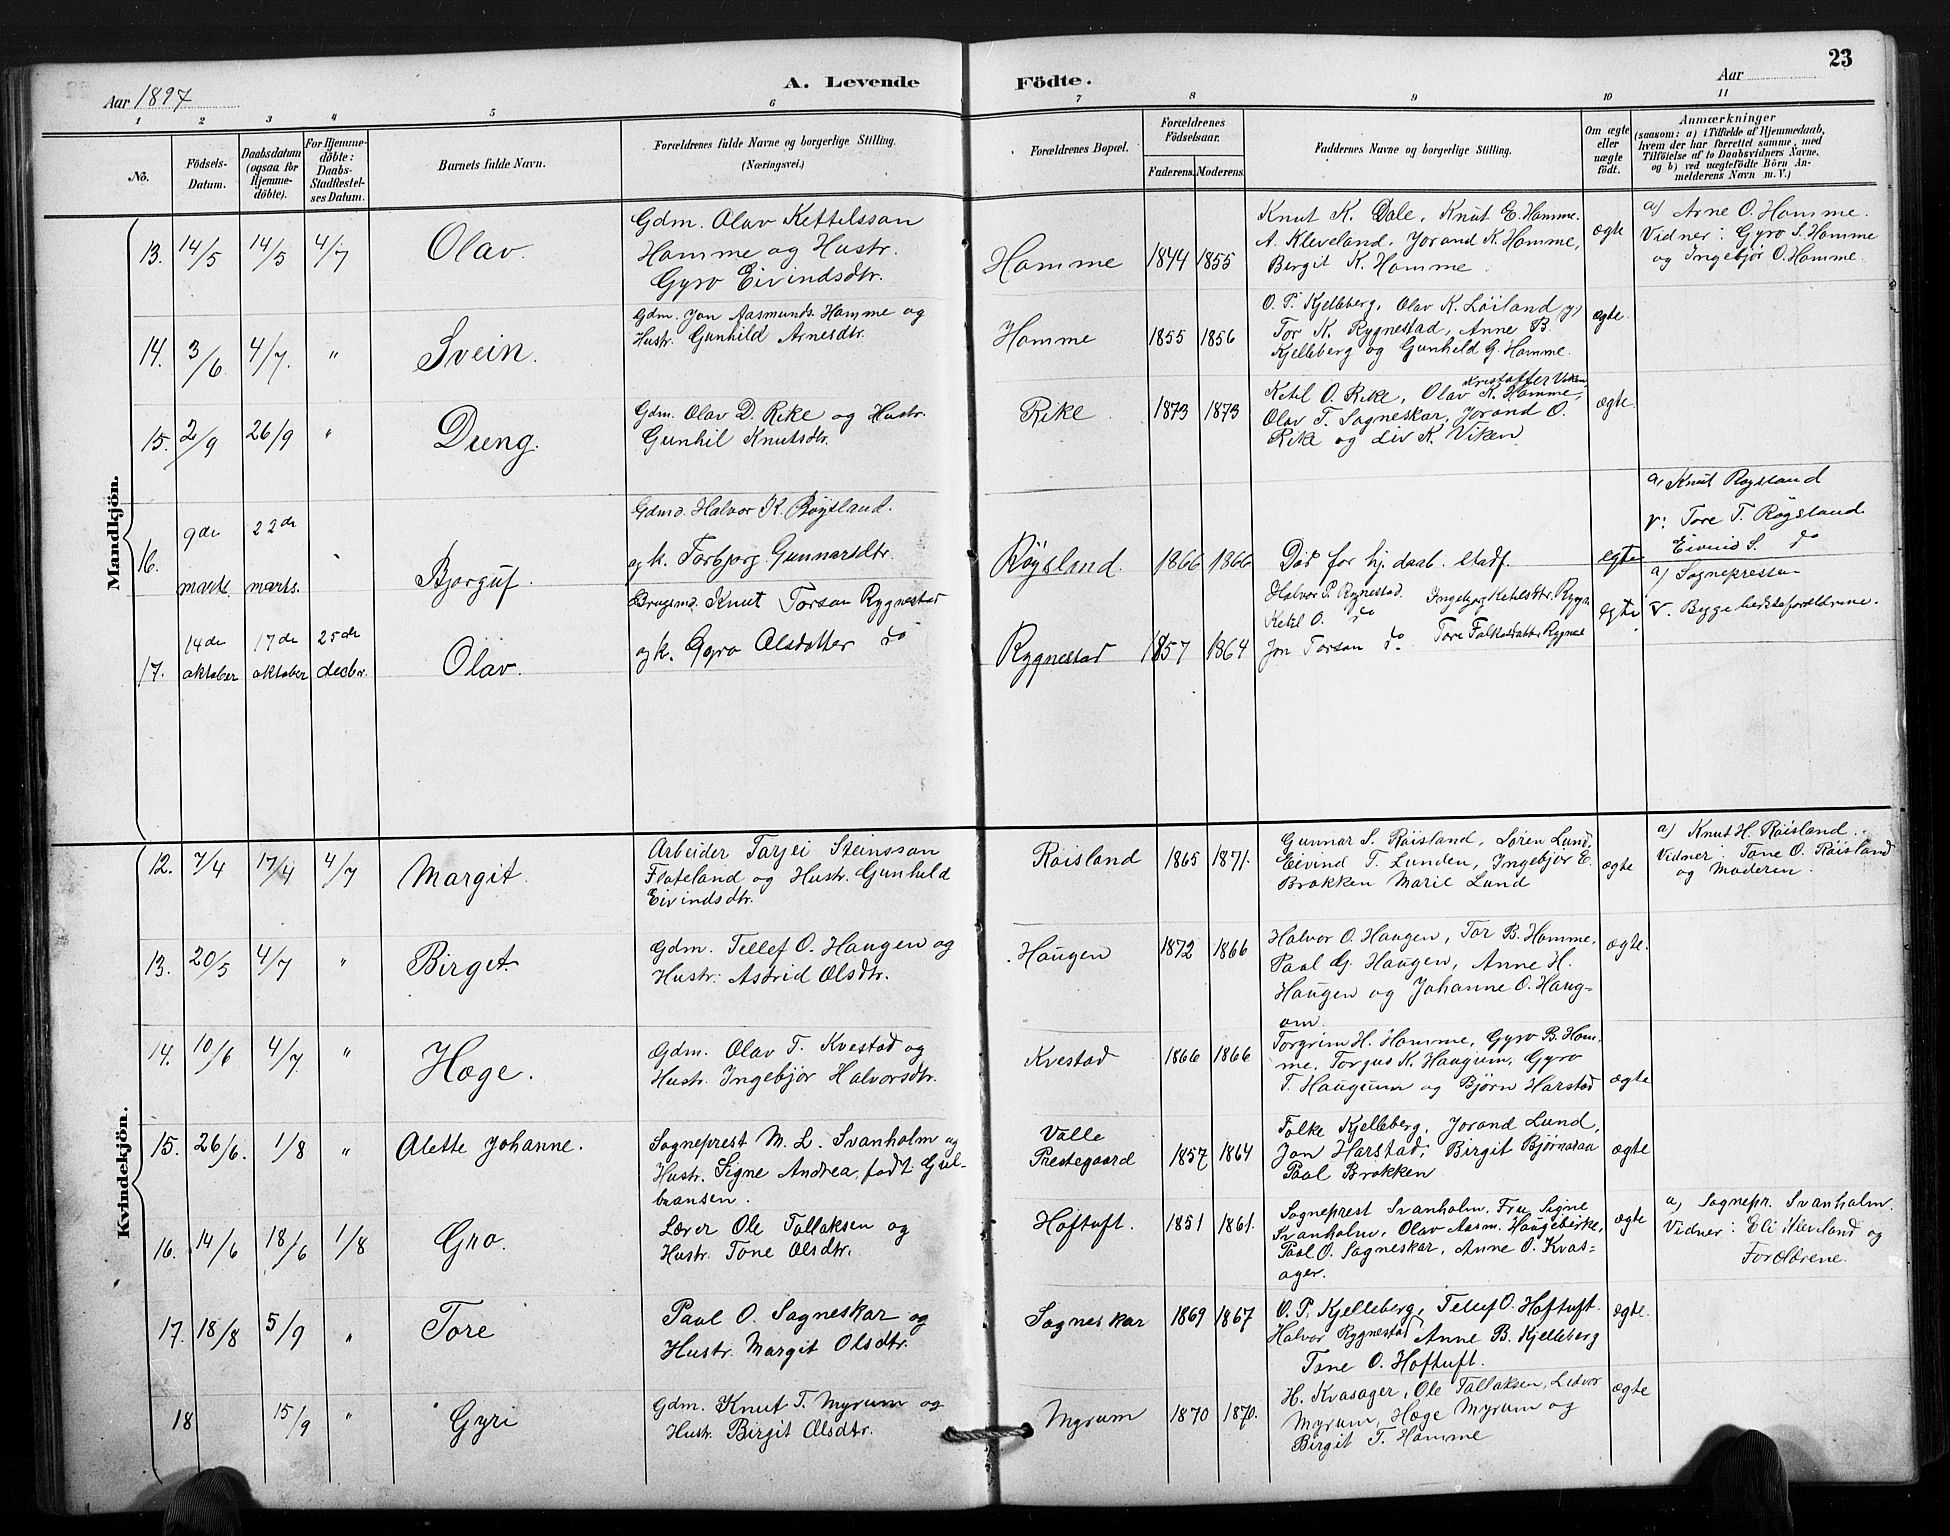 23
Aar 1897
A. Levende Födte.
Aar
1 2 3 4 5 6 7 8 9 10 11
No.
Födsels-Datum.
Daabsdatum (ogsaa for Hjemmedöbte).
For Hjemmedöbte: Daabs-Stadfæstelses Datum.
Barnets fulde Navn.
Forældrenes fulde Navne og borgerlige Stilling. (Næringsvei.)
Forældrenes Bopæl.
Forældrenes Födselsaar.
Faderens. Moderens.
Faddernes Navne og borgerlige Stilling.
Om ægte eller uægte födt.
Anmærkninger (saasom: a) i Tilfælde af Hjemmedaab, hvem der har forrettet samme, med Tilföielse af to Daabsvidners Navne, og b) ved uægtefödte Börn Anmelderens Navn m. V.)
Mandkjön.
13. 14/5 14/5 4/7 Olav.
Gdm. Olav Kettelsson
Homme og Hustr.
Gyro Eivindsdtr.
Homme 1844 1855
Knut K. Dale, Knut E. Homme.
A. Kleveland, Jorand K. Homme,
Bergit K. Homme.
ægte
a) Arne O. Homme.
Vidner: Gyro S. Homme
og Ingebjør O. Homme.
14. 3/6 4/7. " Svein.
Gdm. Jon Aasmunds. Homme og
Hustr. Gunhild Arnesdtr.
Homme 1855 1856
O. P. Kjelleberg, Olav K. Løiland
Tor K. Rygnestad, Anne B.
Kjelleberg og Gunhild G. Homme.
ægte.
15. 2/9 26/9 " Dreng.
Gdm. Olav D. Rike og Hustr.
Gunhil Knutsdtr.
Rike 1873 1873
Kristoffer Viken,
Ketil O. Rike, Olav K. Homme,
Olav T. Sagneskar, Jorand O.
Rike og Liv K. Viken.
ægte.
16. 9de marts 22de marts. Bjorguf.
Gdmd. Halvor K. Røysland.
og k. Torbjorg Gunnarsdtr.
Røysland. 1866 1866
Død for hj. daab. stadf.
egte
a, Knut Røysland
v: Tore T. Røysland
Eivind S. do
17. 14de oktober 17de oktober 25de decbr. Olav.
Brugsmd. Knut Torson Rygnestad
og k. Gyro Olsdatter do
Rygnestad 1857 1864
Halvor P. Rygnestad. Ingebjorg Ketilsdtr. Rygn.
Ketil O. do
Jon Torson do Tore Folkesdatter Rygnes
egte
a) Sognepresten
v. Bygge bedsteforældrene.
Kvindekjön.
12. 7/4 17/4 4/7 Margit.
Arbeider Tarjei Steinsson
Flateland og Hustr. Gunhild
Eivindsdtr.
Røisland 1865 1871.
Gunnar S. Røisland, Søren Lund,
Eivind T. Lunden, Ingebjør E.
Brokken Marie Lund
ægte
a) Knut H. Røisland.
Vidner: Tone O. Røisland
og Moderen.
13. 20/5 4/7 " Birget.
Gdm. Tellef O. Haugen og
Hustr. Astrid Olsdtr.
Haugen 1872 1866
Halvor O. Haugen, Tor B. Homme,
Paal G. Haugen, Anne H.
Haugen og Johanne O. Haug-
om.
ægte.
14. 10/6 4/7 " Hæge.
Gdm. Olav T. Kvestad og
Hustr. Ingebjør Halvorsdtr.
Kvestad 1866 1866
Torgrim H. Homme, Gyro B. Hom-
me, Torjus K. Haugum, Gyro
T. Haugum og Bjørn Harstad
ægte
15. 26/6. 1/8 " Alette Johanne.
Sogneprest M. L. Svanholm og
Hustr. Signe Andrea, født Gul-
bransen.
Valle
Prestegaard 1857 1864
Folke Kjelleberg, Jorand Lund,
Jon Harstad, Birgit Bjørnaraa
Paal Brokken
ægte
16. 14/6 18/6 1/8 Gro.
Lærer Ole Tallaksen og
Hustr. Tone Olsdtr.
Hoftuft. 1851 1861.
Sogneprest Svanholm. Fru Signe
Svanholm, Olav Aasm. Haugebirke,
Paal O. Sagneskar, Anne O. Kvas-
ager.
ægte
a) Sognepr. Svanholm.
Vidner: Eli Kleveland og
Forældrene.
17. 18/8 5/9 " Tore
Paal O. Sagneskar og
Hustr. Margit Olsdtr.
Sagneskar 1869 1867
O. P. Kjelleberg, Tellef O. Hoftuft.
Halvor Rygnestad, Anne B. Kjelleberg
Tone O. Hoftuft.
ægte.
18 15/9 " Gyri
Gdm. Knut T. Myrum og
Hustr. Birgit Olsdtr.
Myrum 1870 1870.
H. Kvasager, Ole Tallaksen, Lidvor
Myrum, Hæge Myrum og
Birgit T. Homme
ægte